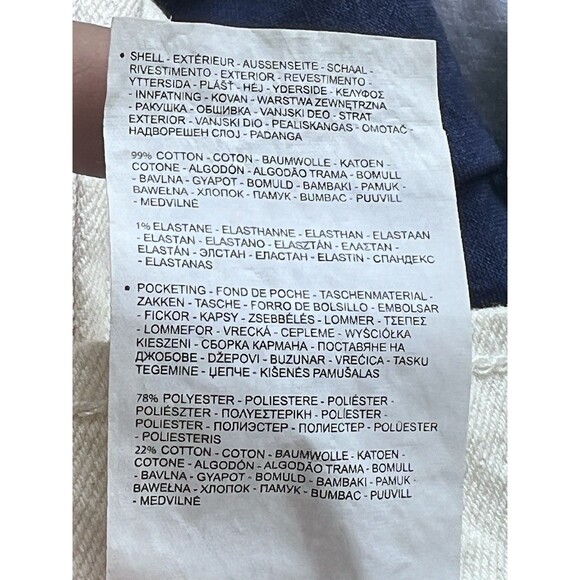 • SHELL - EXTÉRIEUR - AUSSENSEITE - SCHAAL -
RIVESTIMENTO - EXTERIOR - REVESTIMENTO -
YTTERSIDA - PLÁŠŤ - HÉJ - YDERSIDE - ΚΕΛΥΦΟΣ
- INNFATNING - KOVAN - WARSTWA ZEWNĘTRZNA
- РАКУШКА - ОБШИВКА - VANJSKI DEO - STRAT
EXTERIOR - VANJSKI DIO - PEALISKANGAS - ОМОТАČ -
НАДВОРЕШЕН СПОЈ - PADANGA
99% COTTON - COTON - BAUMWOLLE - KATOEN -
COTONE - ALGODÓN - ALGODÃO TRAMA - BOMULL
- BAVLNA - GYAPOT - BOMULD - ΒΑΜΒΑΚΙ - PAMUK -
BAWEŁNA - ХЛОПОК - ПАМУК - BUMBAC - PUUVILL
- MEDVILNĖ
1% ELASTANE - ELASTHANNE - ELASTHAN - ELASTAAN
- ELASTAN - ELASTANO - ELASZTÁN - ΕΛΑΣΤΑΝ -
ELASTÁN - ЭЛСТАН - ЕЛАСТАН - ELASTÎN - СПАНДЕКС
- ELASTANAS
• POCKETING - FOND DE POCHE - TASCHENMATERIAL -
ZAKKEN - TASCHE - FORRO DE BOLSILLO - EMBOLSAR
- FICKOR - KAPSY - ZSEBBÉLÉS - LOMMER - ΤΣΕΠΕΣ
- LOMMEFOR - VRECKÁ - CEPLEME - WYŚCIÓŁKA
KIESZENI - СБОРКА КАРМАНА - ПОСТАВЯНЕ НА
ДЖОБОВЕ - DŽEPOVI - BUZUNAR - VREĆICA - TASKU
TEGEMINE - ЏЕПЧЕ - KIŠENĖS PAMUŠALAS
78% POLYESTER - POLIESTERE - POLIÉSTER -
POLIÉSZTER - ΠΟΛΥΕΣΤΕΡΙΚΗ - POLÍESTER -
POLYESTER - ПОЛИЭСТЕР - ПОЛИЕСТЕР - POLÜESTER
- POLIESTERIS
22% COTTON - COTON - BAUMWOLLE - KATOEN -
COTONE - ALGODÓN - ALGODÃO TRAMA - BOMULL
- BAVLNA - GYAPOT - BOMULD - BAMBAKI - PAMUK -
BAWEŁNA - ХЛОПОК - ПАМУК - BUMBAC - PUUVILL
- MEDVILNĖ